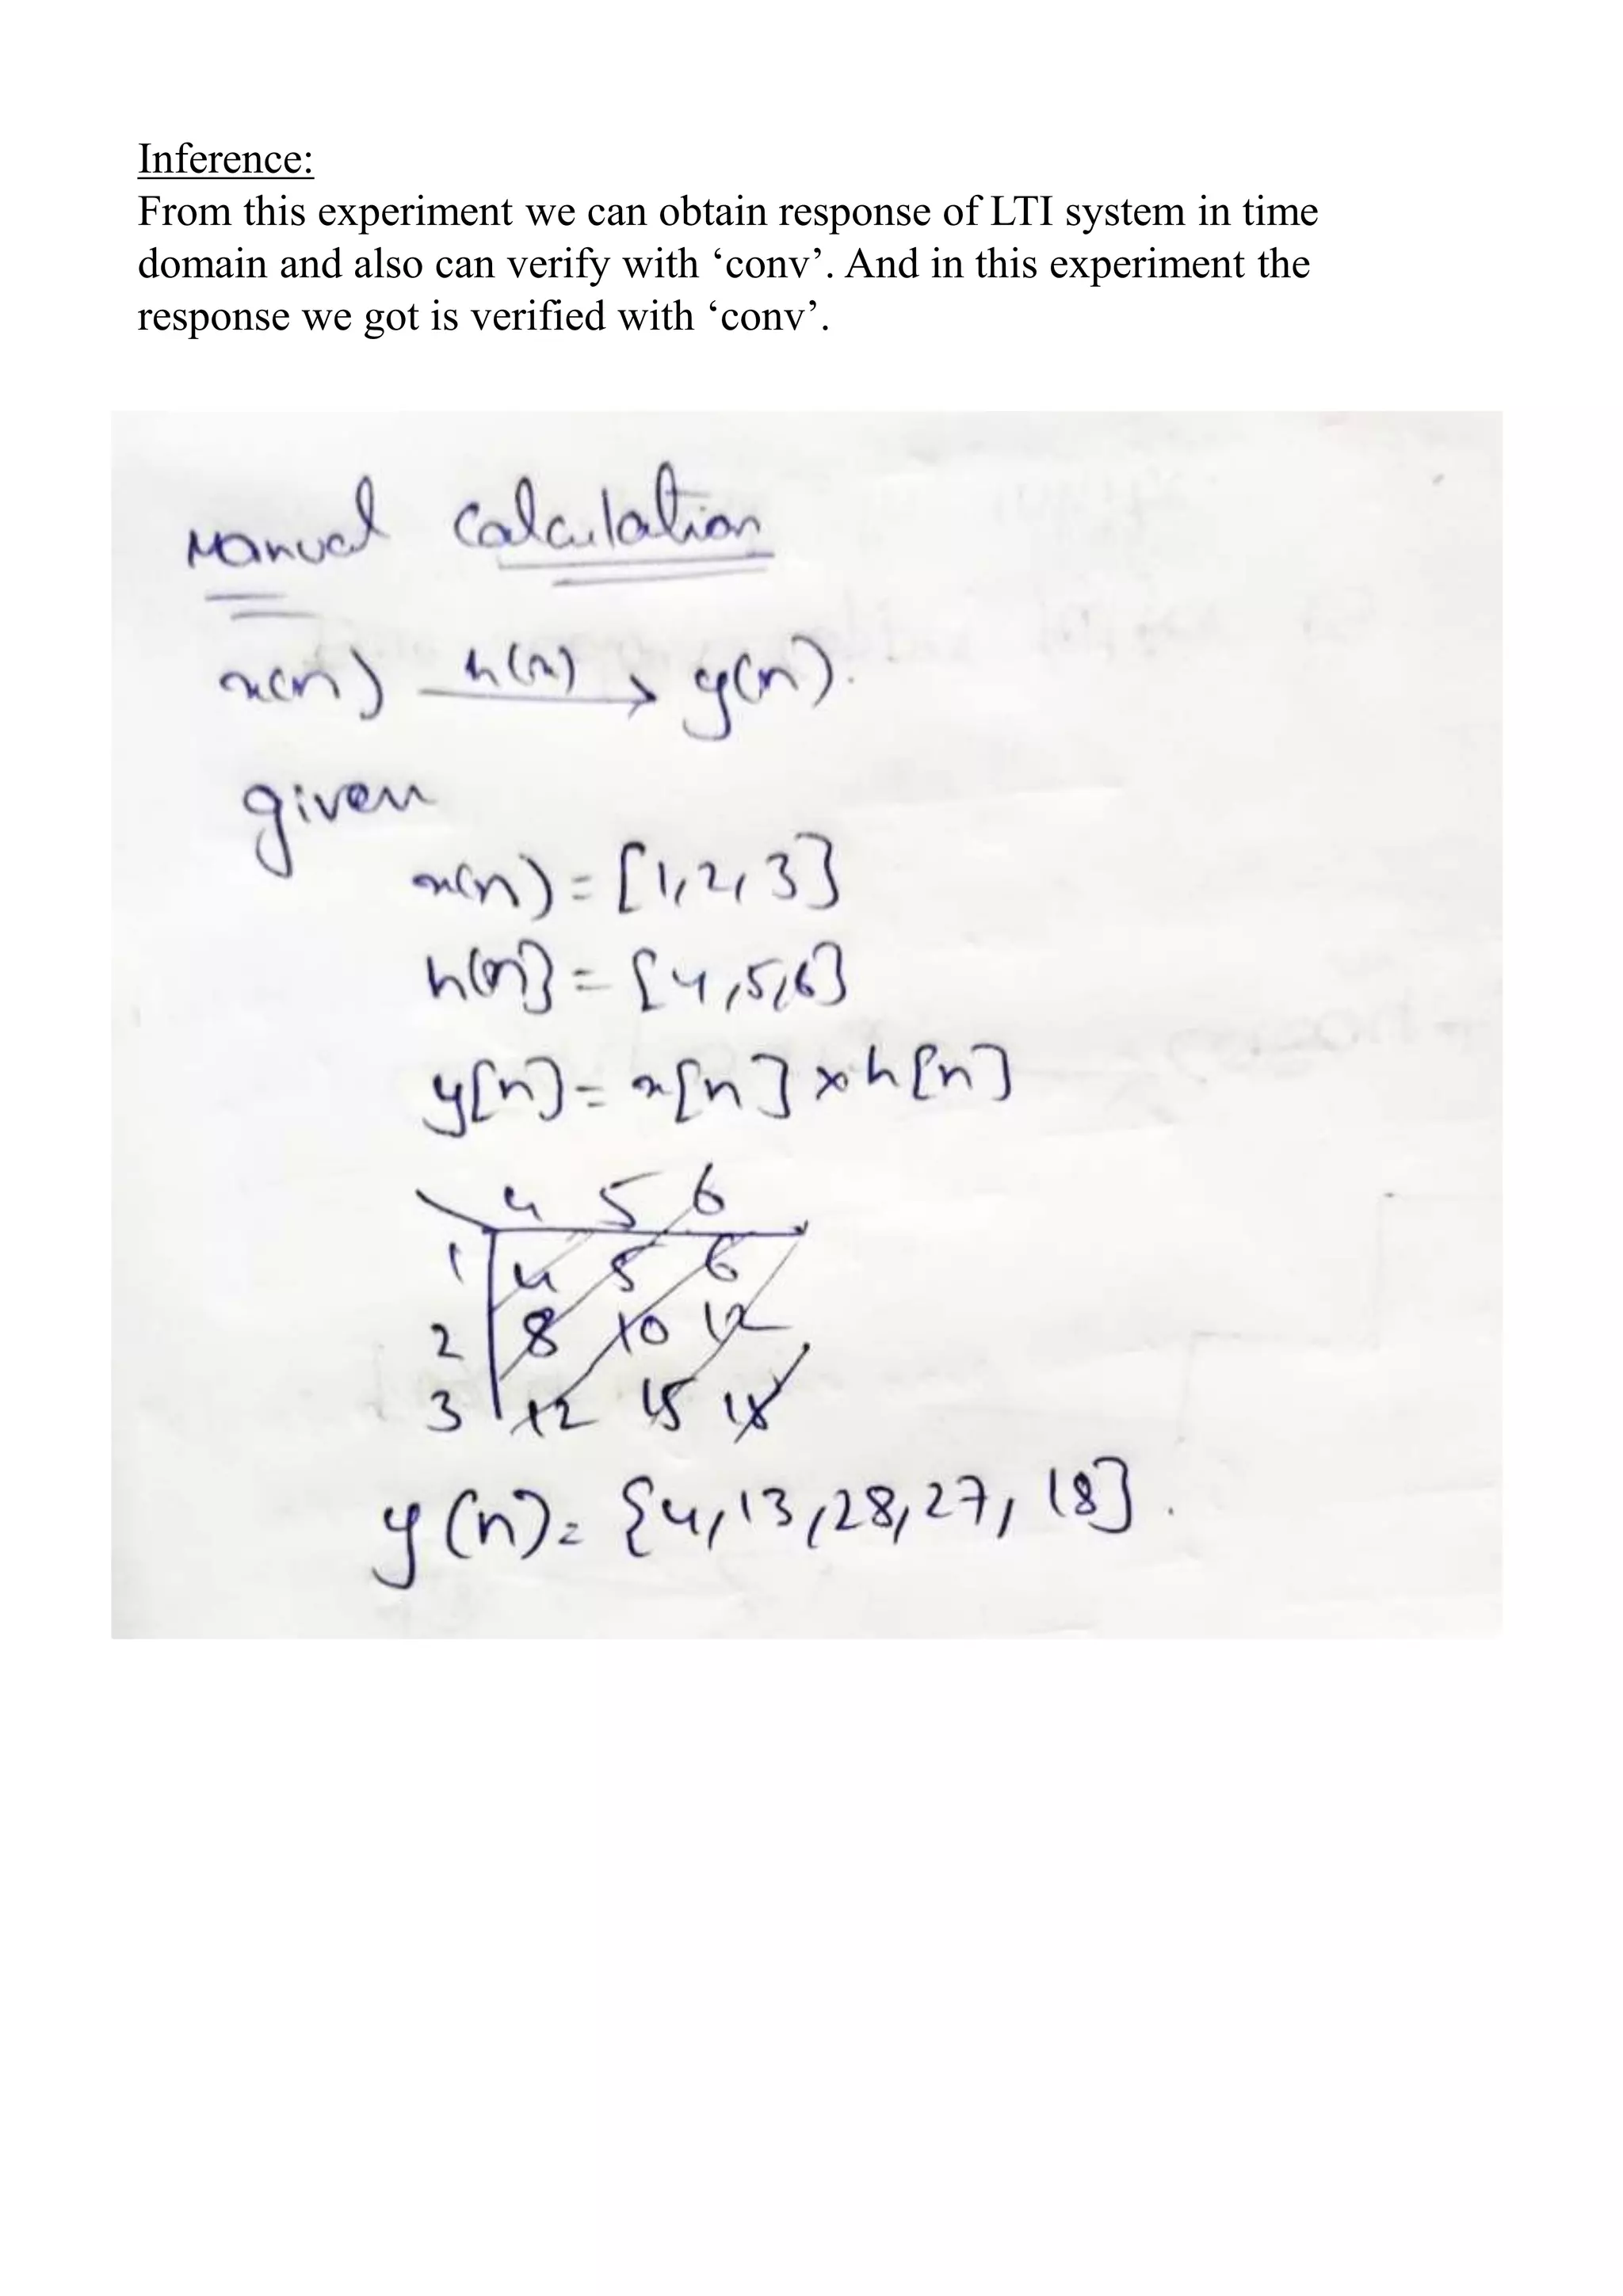 Inference:
From this experiment we can obtain response of LTI system in time
domain and also can verify with ‘conv’. And in this experiment the
response we got is verified with ‘conv’.
Manual Calculation
x(n) h(n) → y(n).
given
x(n) = [1,2,3}
h(n} = {4,5,6}
y[n] = x[n] * h[n]
4 5 6
1 4 5 6
2 8 10 12
3 12 15 18
y(n) = {4,13,28,27,18}.